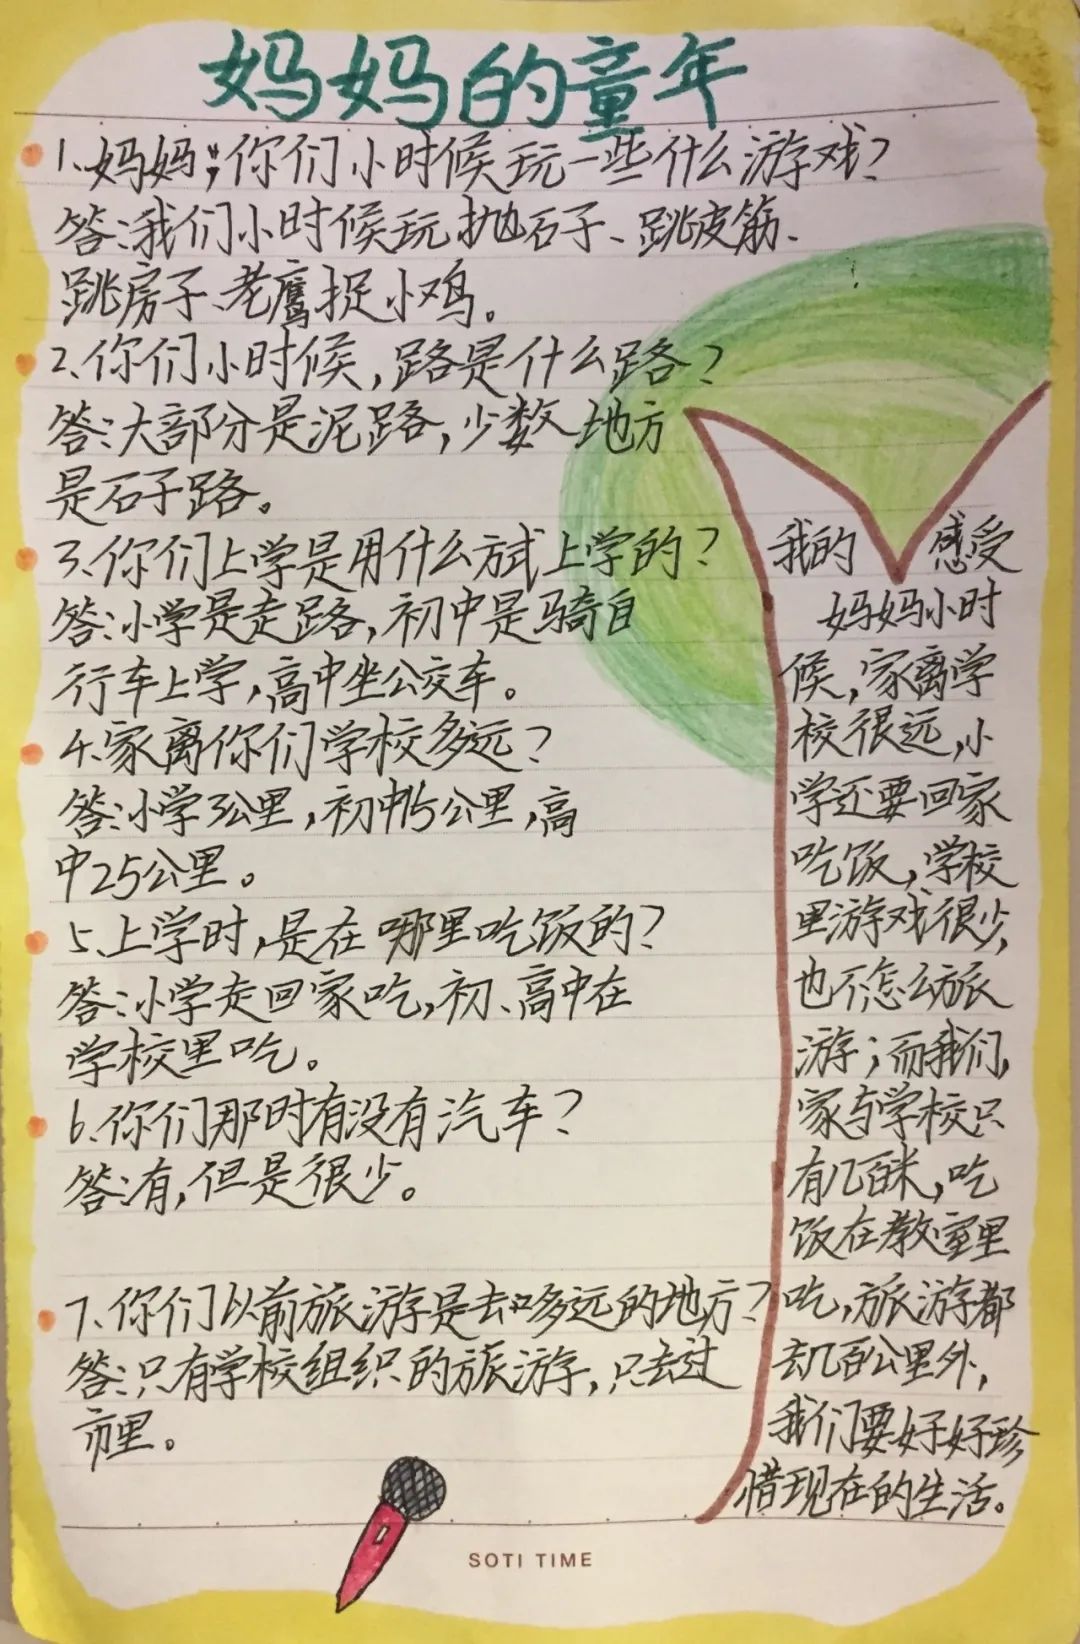 妈妈的童年
1、妈妈;你们小时候玩一些什么游戏?
答:我们小时候玩抛石子、跳皮筋、
跳房子、老鹰捉小鸡。
2、你们小时候,路是什么路?
答:大部分是泥路,少数地方
是石子路。
3、你们上学是用什么方式上学的?
答:小学是走路,初中是骑自
行车上学,高中坐公交车。
4、家离你们学校多远?
答:小学3公里,初中15公里,高
中25公里。
5、上学时,是在哪里吃饭的?
答:小学走回家吃,初、高中在
学校里吃。
6、你们那时有没有汽车?
答:有,但是很少。
7、你们以前旅游是去多远的地方?
答:只有学校组织的旅游,只去过
市里。
我的感受
妈妈小时
候,家离学
校很远,小
学还要回家
吃饭,学校
里游戏很少,
也不怎么旅
游;而我们,
家与学校只
有几百米,吃
饭在教室里
吃,旅游都
去几百公里外,
我们要好好珍
惜现在的生活。
SOTI TIME